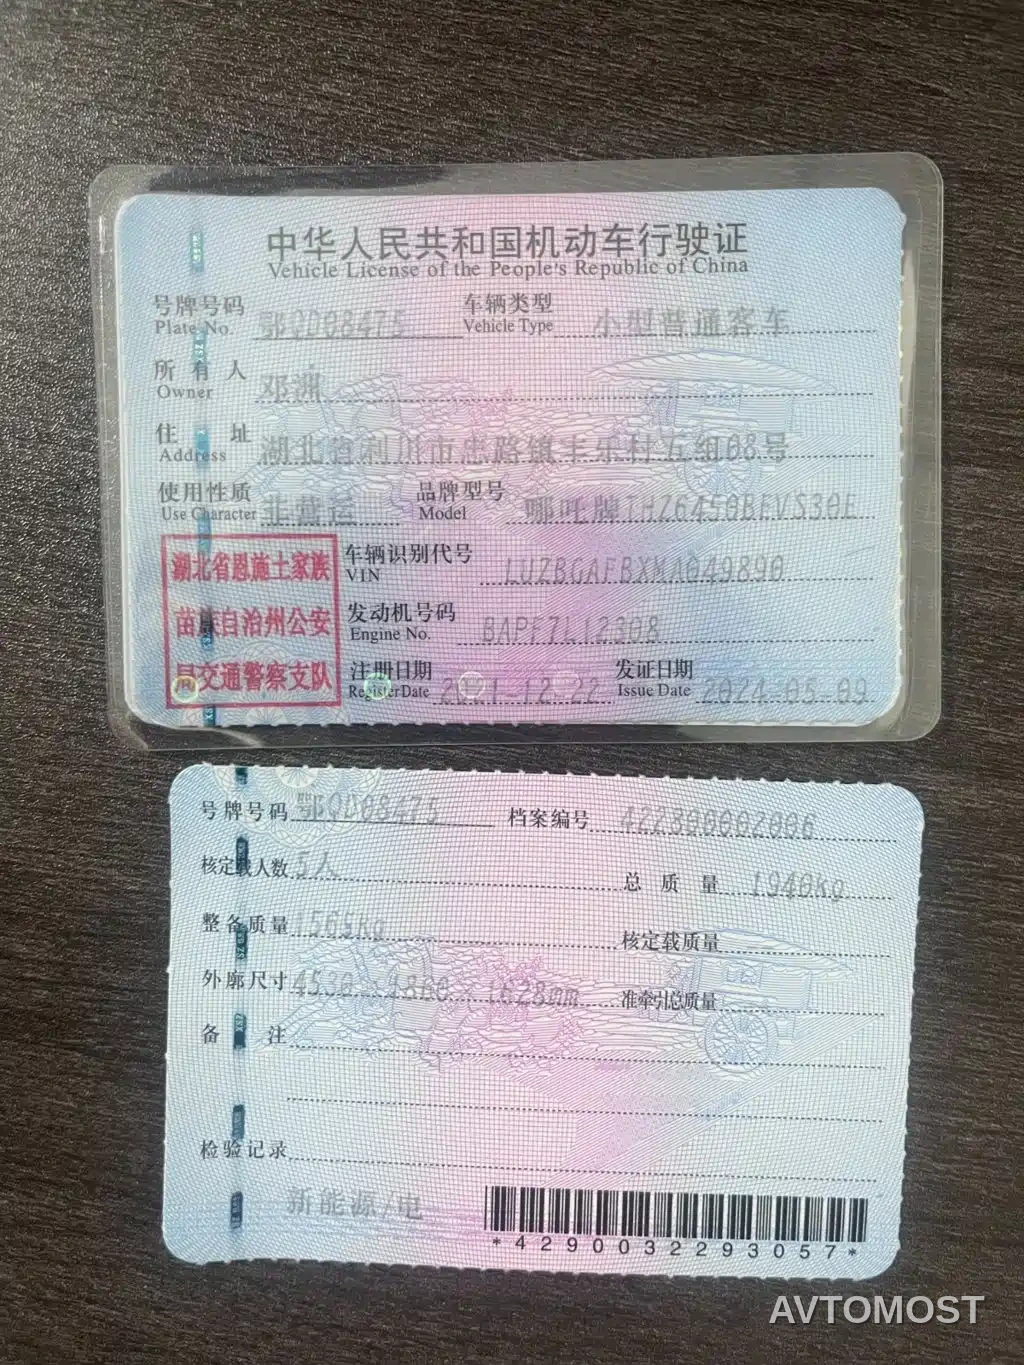 中华人民共和国机动车行驶证
Vehicle License of the People's Republic of China
号牌号码 鄂QD08475 车辆类型 小型普通客车
Plate No. Vehicle Type
所有人 邓洲
Owner
住址 湖北省利川市忠路镇丰乐村五组08号
Address
使用性质 非营运 品牌型号 哪吒牌THZ6450BEVS30E
Use Character Model
湖北省恩施土家族
苗族自治州公安
局交通警察支队
车辆识别代号 LUZBGAFBXMA049890
VIN
发动机号码 BAPF7L12308
Engine No.
注册日期 2021-12-22 发证日期 2024-03-09
Register Date Issue Date
号牌号码 鄂QD08475 档案编号 422800002006
核定载人数 5人 总质量 1940kg
整备质量 1565kg 核定载质量
外廓尺寸 4530×1860×1628mm 准牵引总质量
备注
检验记录
新能源/电
*4290032293057*
AVTOMOST